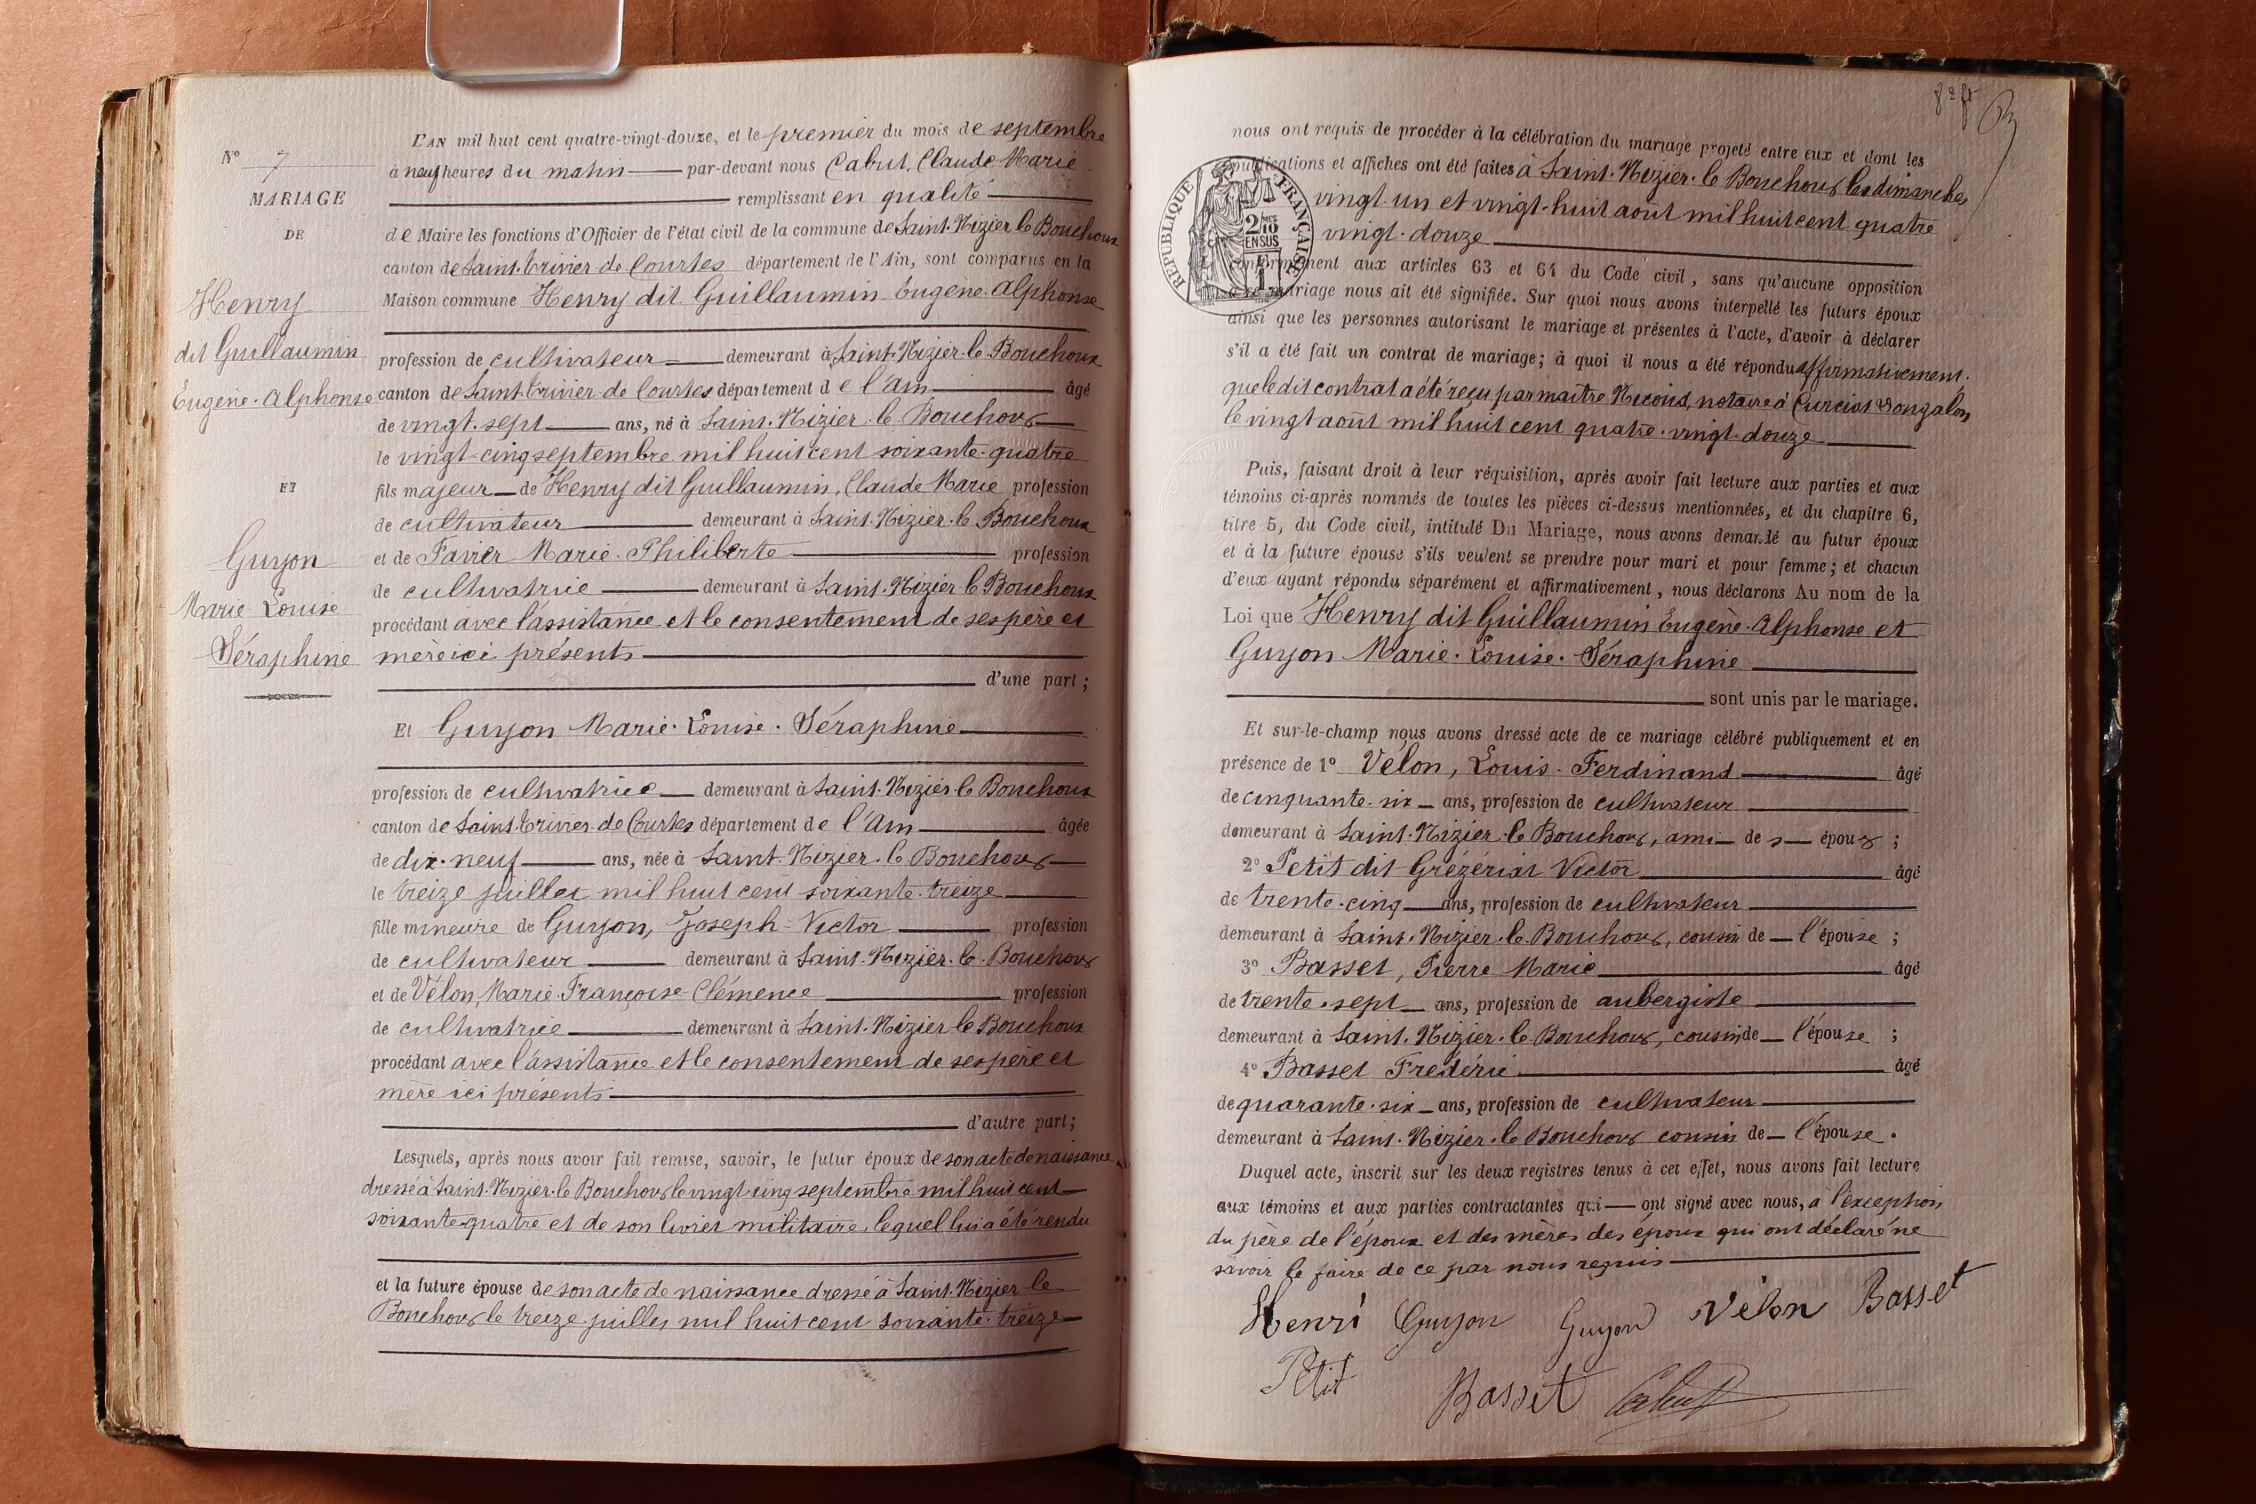 N° 7
MARIAGE
DE
Henry
dit Guillaumin
Eugène-Alphonse
ET
Guyon
Marie Louise
Séraphine
L'AN mil huit cent quatre-vingt-douze, et le premier du mois de septembre
à neuf heures du matin par-devant nous Cabut, Claude Marie
remplissant en qualité
de Maire les fonctions d'Officier de l'état civil de la commune de Saint-Nizier le Bouchoux
canton de Saint-Trivier de Courtes département de l'Ain, sont comparus en la
Maison commune Henry dit Guillaumin Eugène-Alphonse
profession de cultivateur demeurant à Saint-Nizier-le Bouchoux
canton de Saint-Trivier-de Courtes département de l'Ain âgé
de vingt-sept ans, né à Saint-Nizier-le Bouchoux
le vingt-cinq septembre mil huit cent soixante-quatre
fils majeur de Henry dit Guillaumin, Claude Marie profession
de cultivateur demeurant à Saint-Nizier-le Bouchoux
et de Favier Marie-Philiberte profession
de cultivatrice demeurant à Saint-Nizier le Bouchoux
procédant avec l'assistance et le consentement de ses père et
mère ici présents
d'une part ;
Et Guyon Marie-Louise-Séraphine
profession de cultivatrice demeurant à Saint-Nizier-le Bouchoux
canton de Saint-Trivier-de Courtes département de l'Ain âgée
de dix-neuf ans, née à Saint-Nizier-le Bouchoux
le treize juillet mil huit cent soixante-treize
fille mineure de Guyon, Joseph-Victor profession
de cultivateur demeurant à Saint-Nizier-le-Bouchoux
et de Vélon, Marie-Françoise-Clémence profession
de cultivatrice demeurant à Saint-Nizier le Bouchoux
procédant avec l'assistance et le consentement de ses père et
mère ici présents
d'autre part ;
Lesquels, après nous avoir fait remise, savoir, le futur époux de son acte de naissance
dressé à Saint-Nizier-le Bouchoux le vingt-cinq septembre mil huit cent
soixante-quatre et de son livret militaire, lequel lui a été rendu
et la future épouse de son acte de naissance dressé à Saint-Nizier-le
Bouchoux le treize juillet mil huit cent soixante-treize
nous ont requis de procéder à la célébration du mariage projeté entre eux et dont les
publications et affiches ont été faites à Saint-Nizier-le Bouchoux les dimanches
vingt-un et vingt-huit août mil huit cent quatre
vingt-douze
RÉPUBLIQUE FRANÇAISE
2/10 EN SUS
conformément aux articles 63 et 64 du Code civil, sans qu'aucune opposition
mariage nous ait été signifiée. Sur quoi nous avons interpellé les futurs époux
ainsi que les personnes autorisant le mariage et présentes à l'acte, d'avoir à déclarer
s'il a été fait un contrat de mariage; à quoi il nous a été répondu affirmativement.
que le dit contrat a été reçu par maître notaire à Curciat Dongalon,
le vingt août mil huit cent quatre-vingt-douze
Puis, faisant droit à leur réquisition, après avoir fait lecture aux parties et aux
témoins ci-après nommés de toutes les pièces ci-dessus mentionnées, et du chapitre 6,
titre 5, du Code civil, intitulé Du Mariage, nous avons demandé au futur époux
et à la future épouse s'ils veulent se prendre pour mari et pour femme ; et chacun
d'eux ayant répondu séparément et affirmativement, nous déclarons Au nom de la
Loi que Henry dit Guillaumin Eugène-Alphonse et
Guyon Marie-Louise-Séraphine
sont unis par le mariage.
Et sur-le-champ nous avons dressé acte de ce mariage célébré publiquement et en
présence de 1° Vélon, Louis-Ferdinand âgé
de cinquante-six ans, profession de cultivateur
demeurant à Saint-Nizier-le Bouchoux, ami de s époux ;
2° Petit dit Grézériat Victor âgé
de trente-cinq ans, profession de cultivateur
demeurant à Saint-Nizier-le-Bouchoux, cousin de l'épouse ;
3° Basset, Pierre Marie âgé
de trente-sept ans, profession de aubergiste
demeurant à Saint-Nizier-le-Bouchoux, cousin de l'épouse ;
4° Basset Frédéric âgé
de quarante-six ans, profession de cultivateur
demeurant à Saint-Nizier-le Bouchoux cousin de l'épouse.
Duquel acte, inscrit sur les deux registres tenus à cet effet, nous avons fait lecture
aux témoins et aux parties contractantes qui ont signé avec nous, à l'exception
du père de l'époux et des mères des époux qui ont déclaré ne
savoir le faire de ce par nous requis
Henri Guyon Guyon Vélon Basset
Petit Basset Cabut